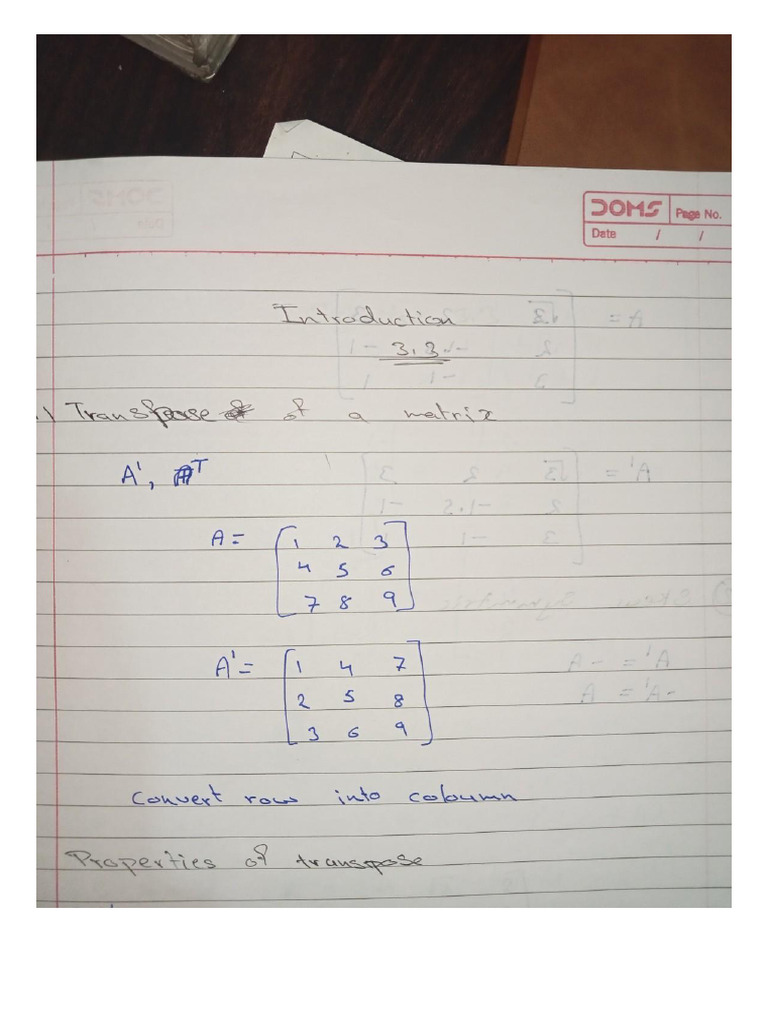 DOMS Page No.
Date / /
Introduction
3.3
1 Transpose of a matrix
A', A^T
A = [1 2 3
4 5 6
7 8 9]
A' = [1 4 7
2 5 8
3 6 9]
Convert row into coloumn
Properties of transpose